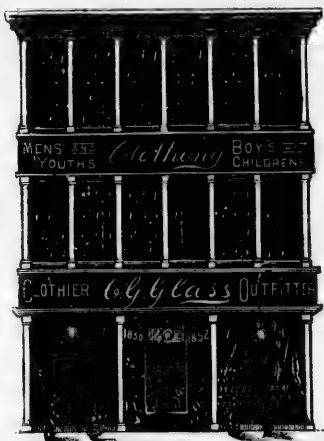 MENS AND Clothing BOY'S AND
YOUTHS CHILDRENS
CLOTHIER C.G. Glass OUTFITTER
1850 1852